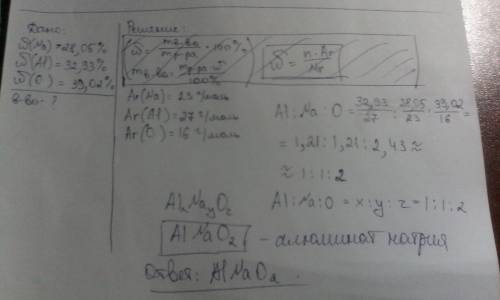 Дано:
ω(Na) = 28,05%
ω(Al) = 32,93%
ω(O) = 39,02%
в-во - ?
Решение:
ω = mв.ва / mр-ра · 100%
mв.ва = mр-ра · ω / 100%
ω = n · Ar / Mr
Ar(Na) = 23 г/моль
Ar(Al) = 27 г/моль
Ar(O) = 16 г/моль
Al : Na : O = 32,93/27 : 28,05/23 : 39,02/16 =
= 1,21 : 1,21 : 2,43 ≈
≈ 1 : 1 : 2
AlxNayOz
Al : Na : O = x : y : z = 1 : 1 : 2
AlNaO2 - алюминат натрия
Ответ: AlNaO2.